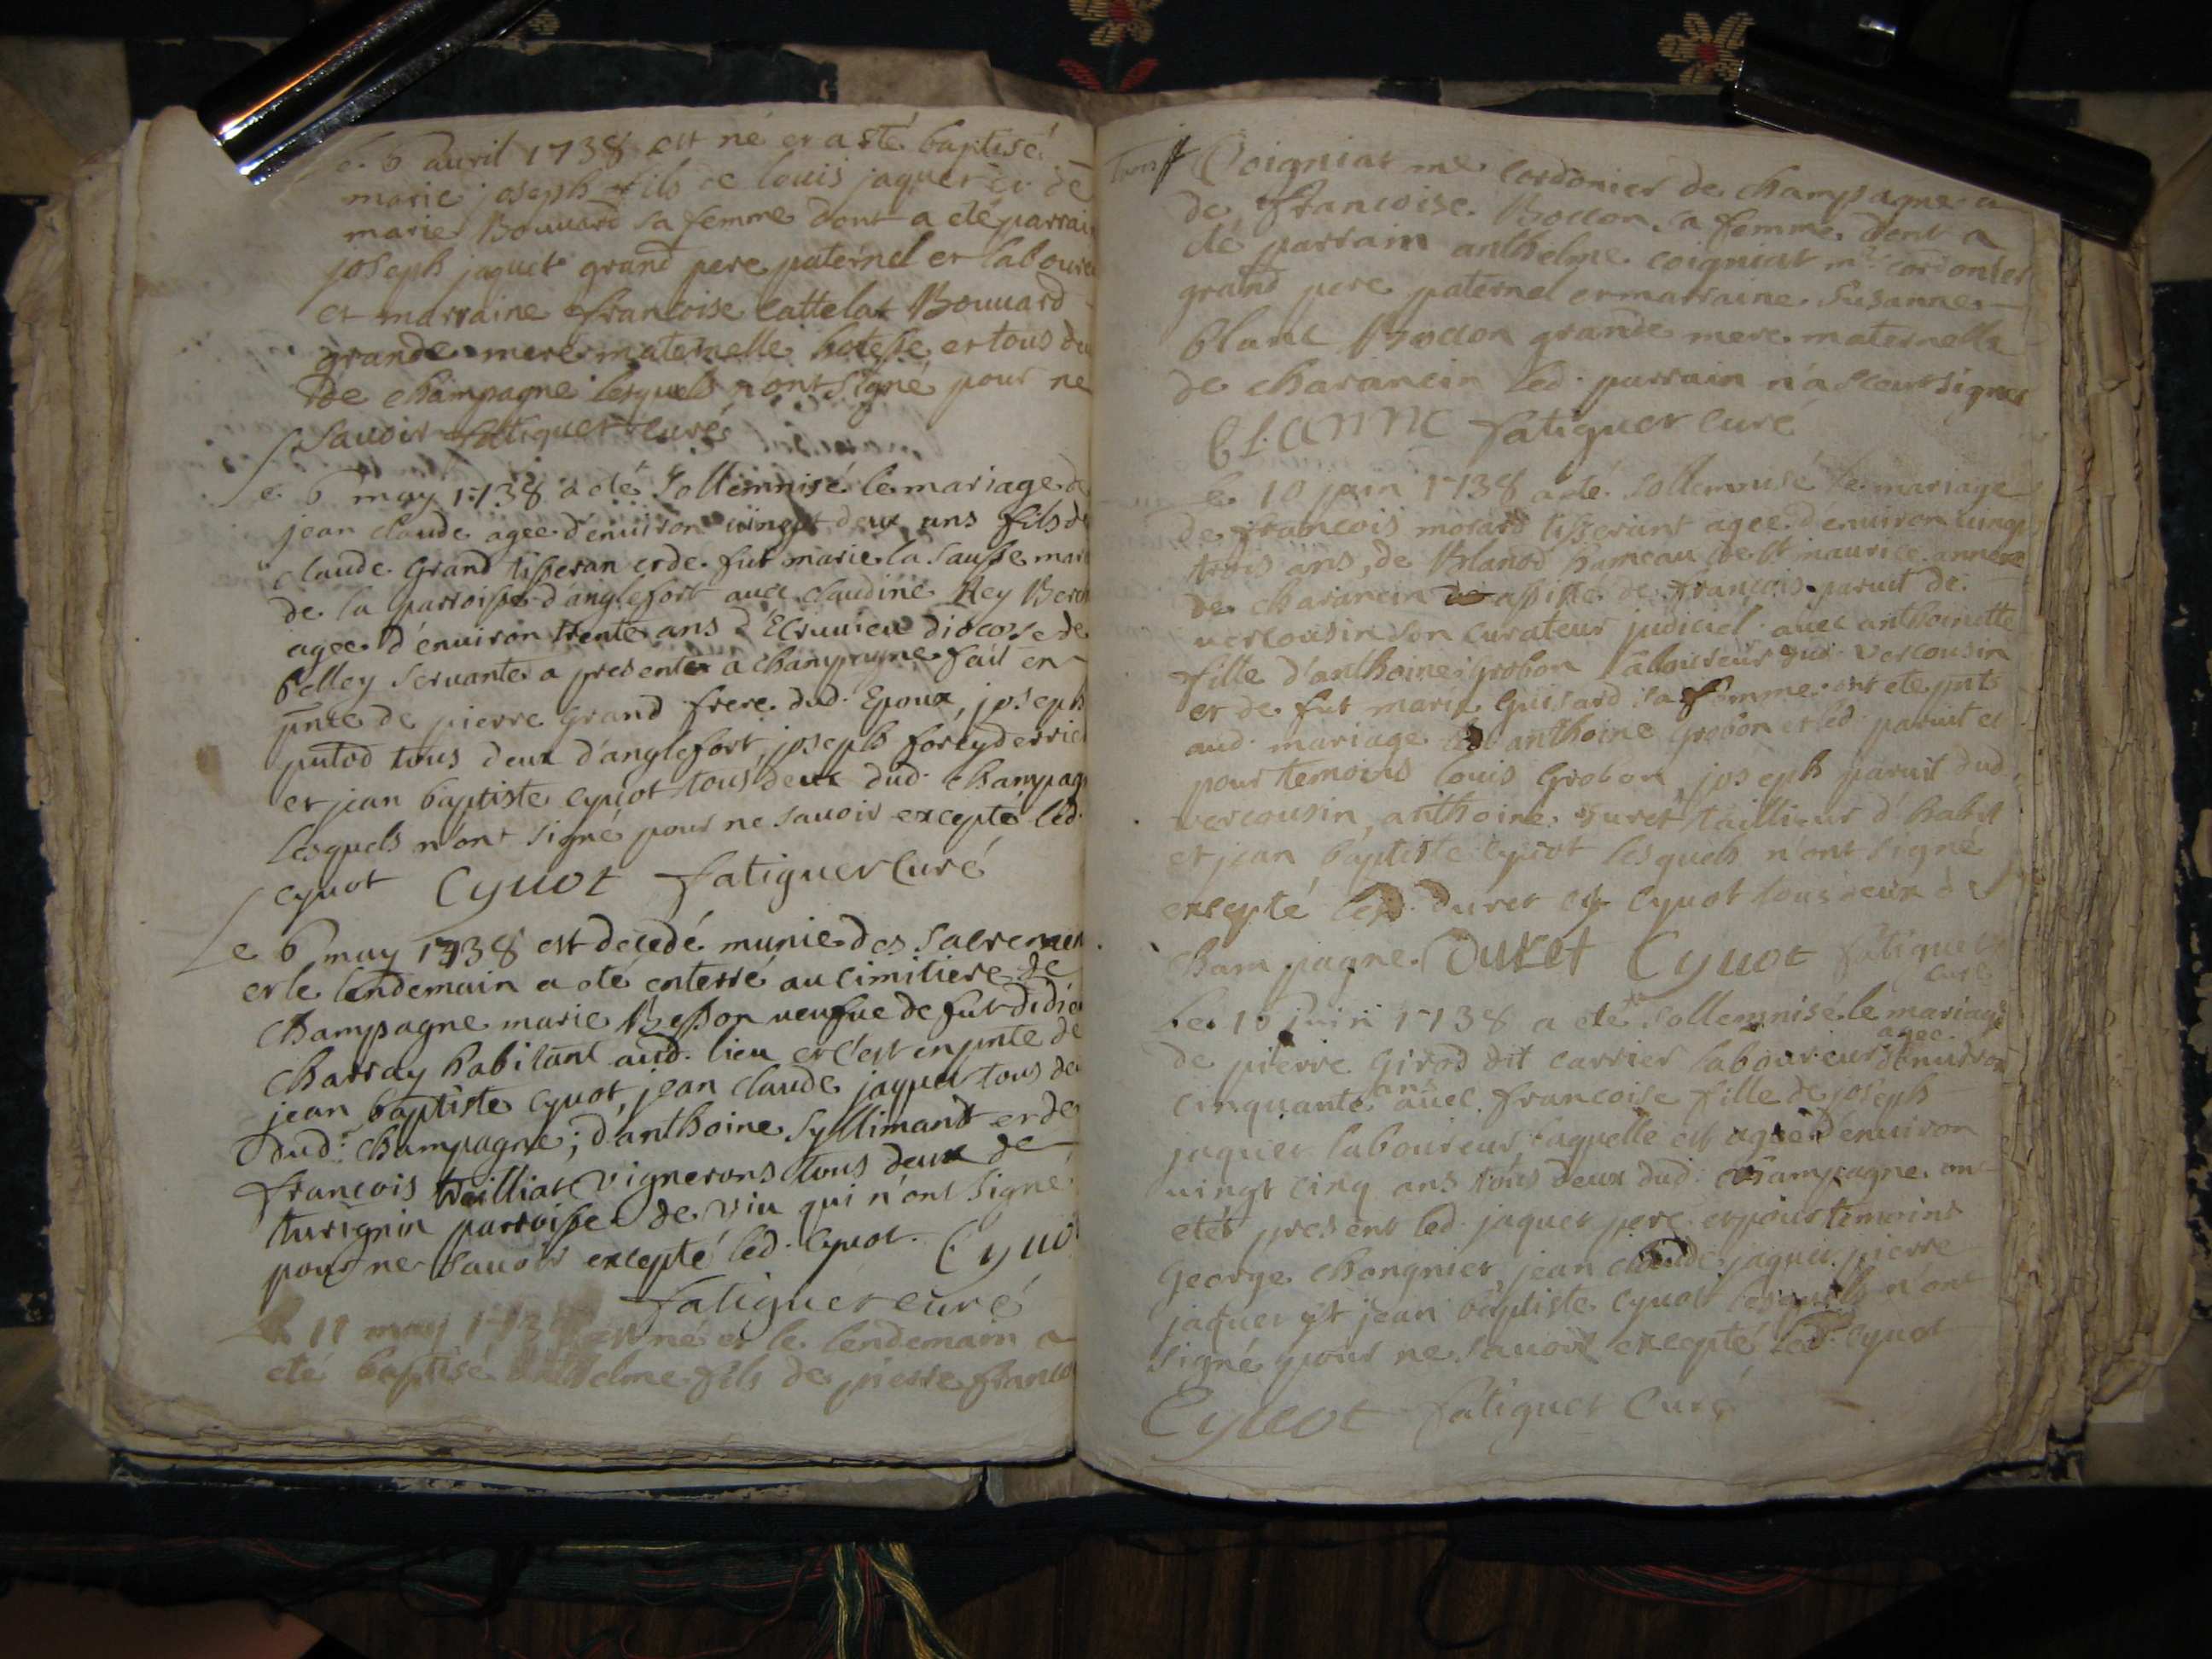 Le 6 auril 1738 est né et a eté baptisé
marie joseph fils de louis jaquet et de
marie Bouuard sa femme dont a eté parrai
joseph jaquet grand pere paternel et laboure
et marraine francoise cattelat Bouuard
grande mere maternelle hotesse et tous du
de champagne lesquels n'ont signé pour ne
sauoir fatiguet curé
Le 6 may 1738 a eté sollemnisé le mariage d
jean claude agee d'enuiron uingt deux ans fils d
claude Grand tisseran et de fut marie la sausse mar
de la parroisse d'anglefort auec claudine Rey Ber
agee d'enuiron trente ans d'Ecruuieu diocose de
belley seruante a presente a champagne fait en
pnce de pierre grand frere dud. Epoux, joseph
putod tous deux d'anglefort, joseph forey derrie
et jean baptiste cyuot tous deux dud. champag
lesquels n'ont signé pour ne sauoir excepté led.
cyuot Cyuot fatiguet Curé
Le 6 may 1738 est decedé munie des sacremen
et le lendemain a eté enterré au cimitiere de
champagne marie Besson ueufue de fut didie
charray habitant aud. lieu et c'est en pnce de
jean baptiste cyuot, jean claude jaquet tous de
dud: champagne; d'anthoine syllimant et de
francois trailliat vignerons tous deux de
turignin parroisse de viu qui n'ont signé
pour ne sauoir excepté led. cyuot. Cyuo
fatiguet curé
Le 11 may 1738 est né et le lendemain a
eté baptisé anthelme fils de pierre franco
Coigniat me cordonier de champagne et
de francoise Bocion sa femme dont a
eté parrain anthelme coigniat me cordonier
grand pere paternel et marraine susanne
blanc Bocion grande mere maternelle
de charancin led. parrain n'a sceut signer
fatiguet curé
le 10 juin 1738 a eté sollemnisé le mariage
de francois morard tisserant agee d'enuiron uingt
trois ans, de Blanod hameau de st maurice annexe
de charancin assisté de francois paruit de
uercousin son curateur judiciel auec anthoinette
fille d'anthoine Grobon laboureur vercousin
et de fut marie Guisard sa femme ont eté pnts
aud. mariage led anthoine Grobon et led. paruit et
pour temoins louis Grobon, joseph paruit dud.
vercousin, anthoine Duret tailleur d'habit
et jean baptiste cyuot lesquels n'ont signé
excepté lesd. duret et cyuot tous deux de
Champagne. Duret Cyuot fatiguet
curé
Le 10 juin 1738 a eté sollemnisé le mariage
de pierre Girod dit carrier laboureur agee d'enuiron
cinquante ans auec francoise fille de joseph
jaquet laboureur, laquelle est agee d'enuiron
uingt cinq ans tous deux dud. champagne ont
etés present led. jaquet pere et pour temoins
George Chongnier, jean claude jaquet, pierre
jaquet et jean baptiste cyuot lesquels n'ont
signé pour ne sauoir excepté led. cyuot
Cyuot fatiguet Curé